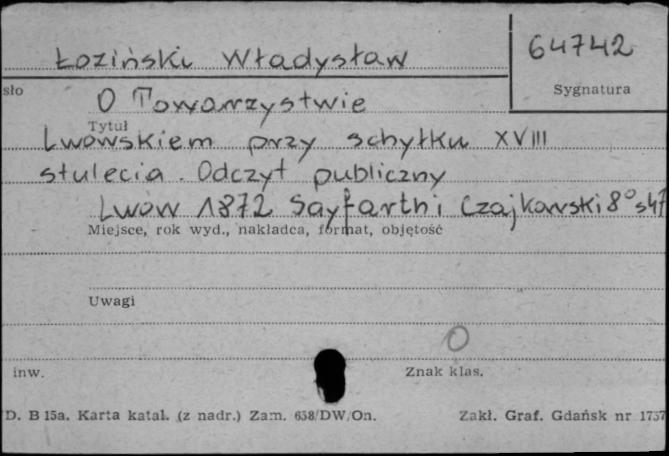 Łoziński Władysław
64742
Sygnatura
sło
O Towarzystwie
Tytuł
Lwowskiem przy schyłku XVIII
stulecia. Odczyt publiczny
Lwów 1872 Sayfarth i Czajkowski 8° s 47
Miejsce, rok wyd., nakładca, format, objętość
Uwagi
O
inw.
Znak klas.
D. B 15a. Karta katal. (z nadr.) Zam. 658/DW/On.
Zakł. Graf. Gdańsk nr 1757